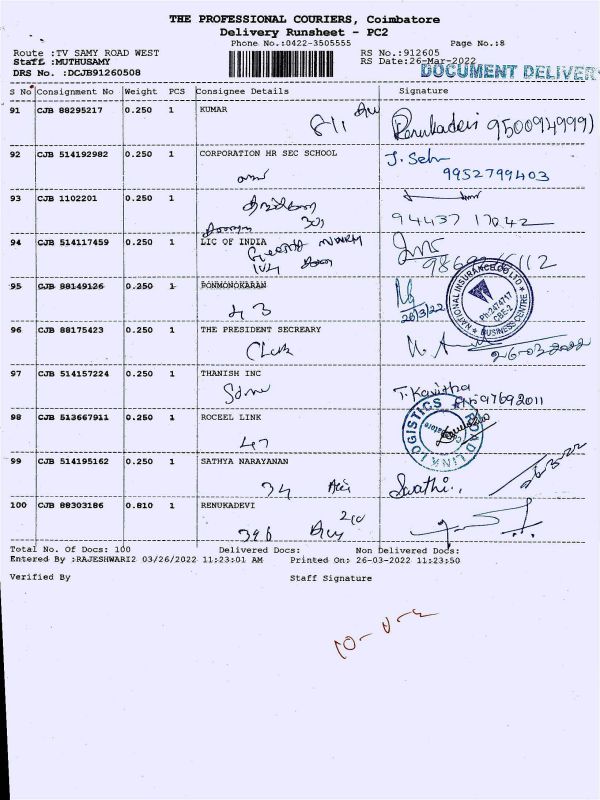 THE PROFESSIONAL COURIERS, Coimbatore
Delivery Runsheet - PC2
Phone No.:0422-3505555 Page No.:8
Route :TV SAMY ROAD WEST RS No.:912605
Staff :MUTHUSAMY RS Date:26-Mar-2022
DRS No. :DCJB91260508 DOCUMENT DELIVER
S No Consignment No Weight PCS Consignee Details Signature
91 CJB 88295217 0.250 1 KUMAR
Renukadevi
92 CJB 514192982 0.250 1 CORPORATION HR SEC SCHOOL
9952799403
93 CJB 1102201 0.250 1
94437 17042
94 CJB 514117459 0.250 1 LIC OF INDIA
95 CJB 88149126 0.250 1 PONMONOKARAN
43
26/3/22
NATIONAL INSURANCE CO LTD
Ph:2474717
CBE-2
BUSINESS CENTRE
96 CJB 88175423 0.250 1 THE PRESIDENT SECREARY
Clerk
26-03-2022
97 CJB 514157224 0.250 1 THANISH INC
T. Kavitha
98 CJB 513667911 0.250 1 ROCEEL LINK
47
ROAD LINK LOGISTICS
99 CJB 514195162 0.250 1 SATHYA NARAYANAN
34
Swathi.
26/3/22
100 CJB 88303186 0.810 1 RENUKADEVI
396
210
Total No. Of Docs: 100 Delivered Docs: Non Delivered Docs:
Entered By :RAJESHWARI2 03/26/2022 11:23:01 AM Printed On: 26-03-2022 11:23:50
Verified By Staff Signature